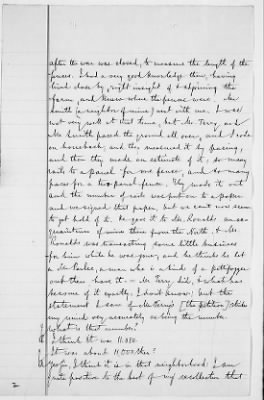 after the war was closed, to measure the length of the
fences. I had a very good knowledge then, having
lived close by, right in sight of & adjoining the
farm, and knew where the fences were. Mr
Smith (a neighbor of mine) went with me. I was
not very well at that time, but Mr Terry, and
Mr Smith paced the ground all over, and I rode
on horseback; and they measured it by pacing,
and then they made an estimate of it, so many
rails to a panel for one fence, and so many
paces for a two panel fence. They made it out
and the number of rods was put on a paper
and we signed that paper, but we cant now seem
to get hold of it. He gave it to Mr. Ronalds an ac-
quaintance of mine there from the North, & Mr
Ronalds was transacting some little business
for him while he was gone, and he thinks he let
a Mr. , a man who is a kind of a pettifogger
out there have it. — Mr Terry did, & what has
become of it exactly, I dont know; but the
statement I saw of Mr Terry's (the petition) strikes
my mind very accurately as being the number.
Q What is that number?
A I think it was 11.000.
Q It was about 11,000 then?
A Yes Sir, I think it is in that neighborhood. I am
quite positive to the best of my recollection that
2